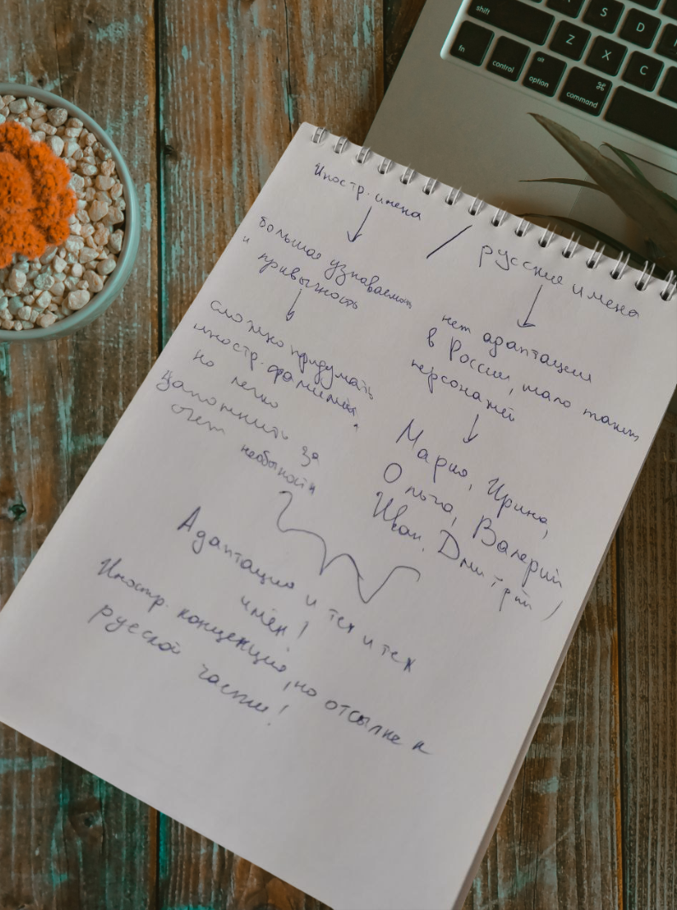 shift
S
D
Z
X
C
fn
control
alt
option
⌘
command
Иностр. имена / русские имена
большая узнаваемость
и привычность
сложно придумать
иностр. фамилии,
но легко
запомнить за
счет необычности
нет адаптации
в России, мало таких
персонажей
Мария, Ирина,
Ольга, Валерий
Иван, Дмитрий
Адаптация и тех и тех
имён!
Иностр. концепция, но отсылке к
русской части!